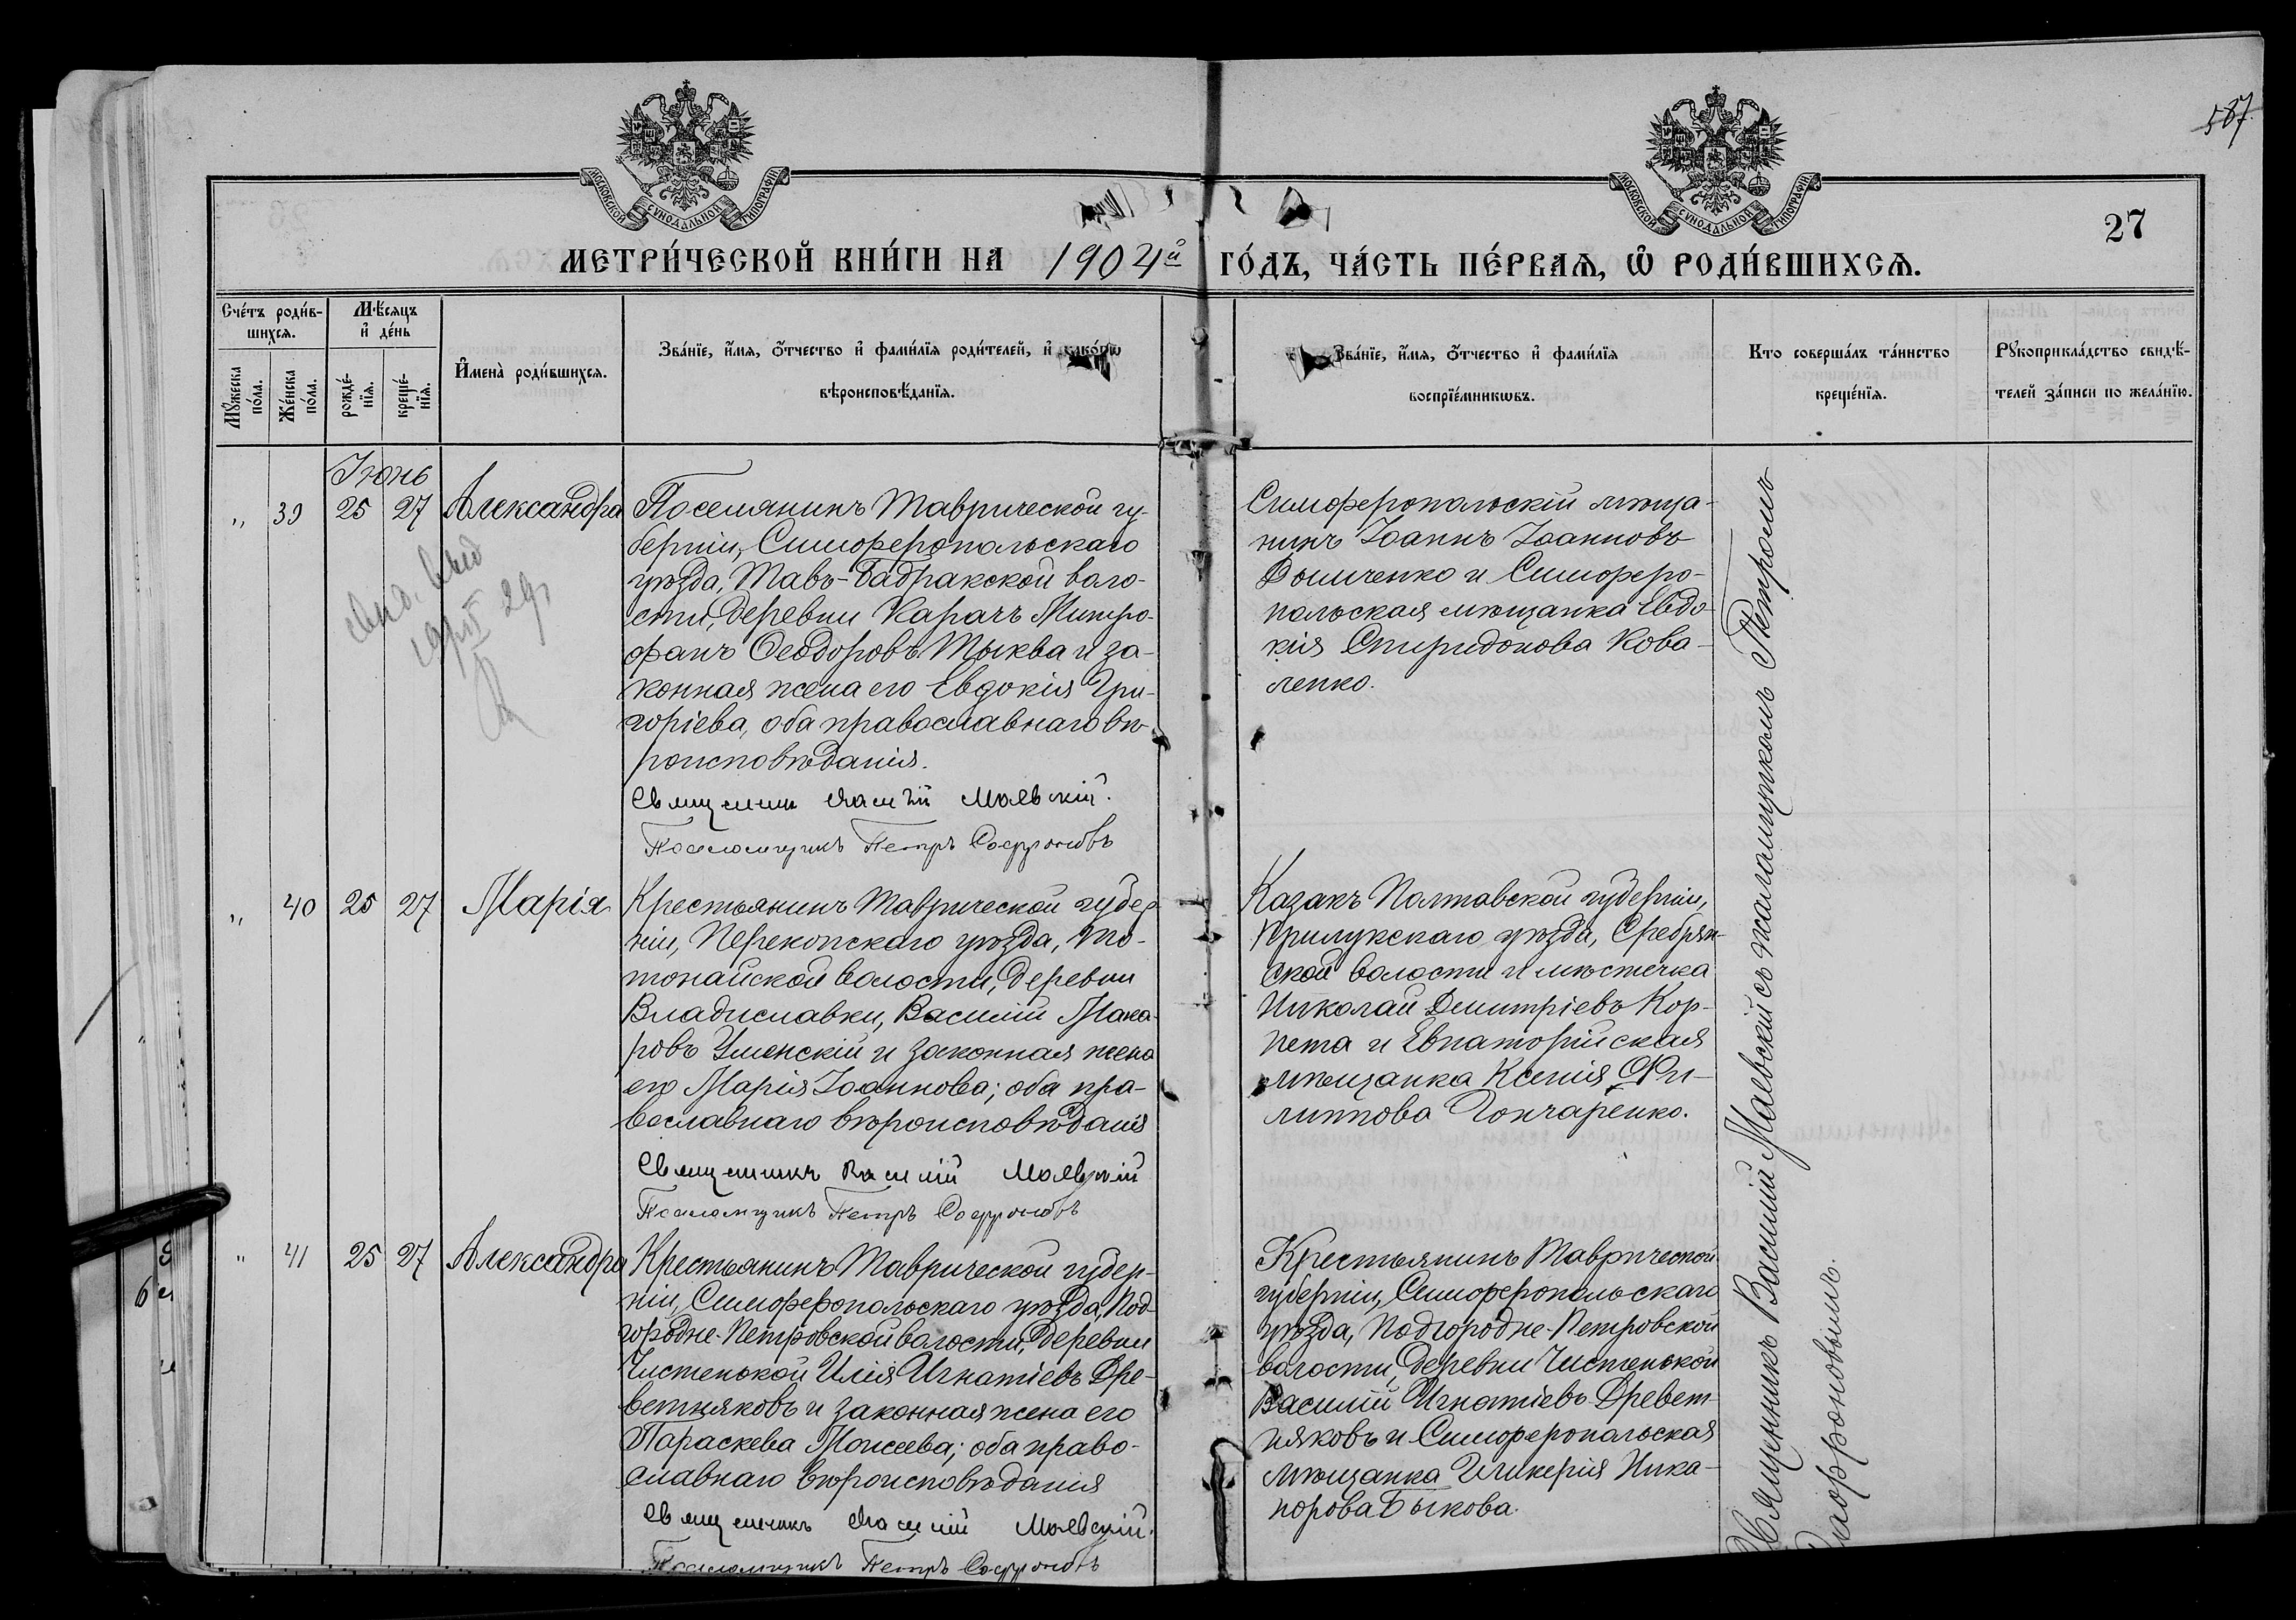 587
27
МОСКОВСКОЙ СѴНОДАЛЬНОЙ ТИПОГРАФІИ
МОСКОВСКОЙ СѴНОДАЛЬНОЙ ТИПОГРАФІИ
МЕТРИ́ЧЕСКОЙ КНИ́ГИ НА 1904й ГО́ДЪ, ЧА́СТЬ ПЕ́РВАѦ, Ѽ РОДИ́ВШИХСѦ.
Сче́тъ роди́в-
шихсѧ.
Мꙋ́жеска
по́ла.
Же́нска
по́ла.
Мѣ́сяцъ
и҆ де́нь
рожде́-
нїѧ.
креще́-
нїѧ.
И҆мена̀ роди́вшихсѧ.
Зва́нїе, и҆́мѧ, ѻ҆́тчество и҆ фами́лїѧ роди́телей, и҆ како́гѡ
вѣроисповѣ́данїѧ.
Зва́нїе, и҆́мѧ, ѻ҆́тчество и҆ фами́лїѧ
воспрїе́мникѡвъ.
Кто соверша́лъ та́инство
креще́нїѧ.
Рꙋкоприкла́дство свидѣ́-
телей за́писи по жела́нїю.
Іюнь
„ 39 25 27 Александра
Поселянинъ Таврической гу-
берніи, Симферопольскаго
уѣзда, Тавъ-Бадракской воло-
сти, деревни Карачъ Митро-
фанъ Ѳеодоровъ Тыква и за-
конная жена его Евдокія Гри-
горіева, оба православнаго вѣ-
роисповѣданія.
Священникъ Василій Маевскій.
Псаломщикъ Петръ Софроновъ
Симферопольскій мѣща-
нинъ Іоаннъ Іоанновъ
Домченко и Симферо-
польская мѣщанка Евдо-
кія Спиридонова Кова-
ленко.
свид. выд
29
„ 40 25 27 Марія
Крестьянинъ Таврической губер-
ніи, Перекопскаго уѣзда,
тонайской волости, деревни
Владиславки, Василій Мака-
ровъ Уменскій и законная жена
его Марія Іоаннова; оба пра-
вославнаго вѣроисповѣданія
Священникъ Василій Маевскій
Псаломщикъ Петръ Софроновъ
Казакъ Полтавской губерніи,
Прилукскаго уѣзда, Сребрян-
ской волости и мѣстечка
Николай Димитріевъ Кор-
пета и Евпаторійская
мѣщанка Ксенія Фи-
липпова Гончаренко.
„ 41 25 27 Александра
Крестьянинъ Таврической губер-
ніи, Симферопольскаго уѣзда, Под-
городне-Петровской волости, деревни
Чистенькой Илія Игнатіевъ Дре-
ветняковъ и законная жена его
Параскева Моисеева; оба право-
славнаго вѣроисповѣданія
Священникъ Василій Маевскій.
Псаломщикъ Петръ Софроновъ
Крестьянинъ Таврической
губерніи, Симферопольскаго
уѣзда, Подгородне-Петровской
волости, деревни Чистенькой
Василій Игнатіевъ Древет-
няковъ и Симферопольская
мѣщанка Гликерія Ника-
норова Быкова.
Священникъ Василій Маевскій съ псаломщикомъ Петромъ
Софроновымъ.